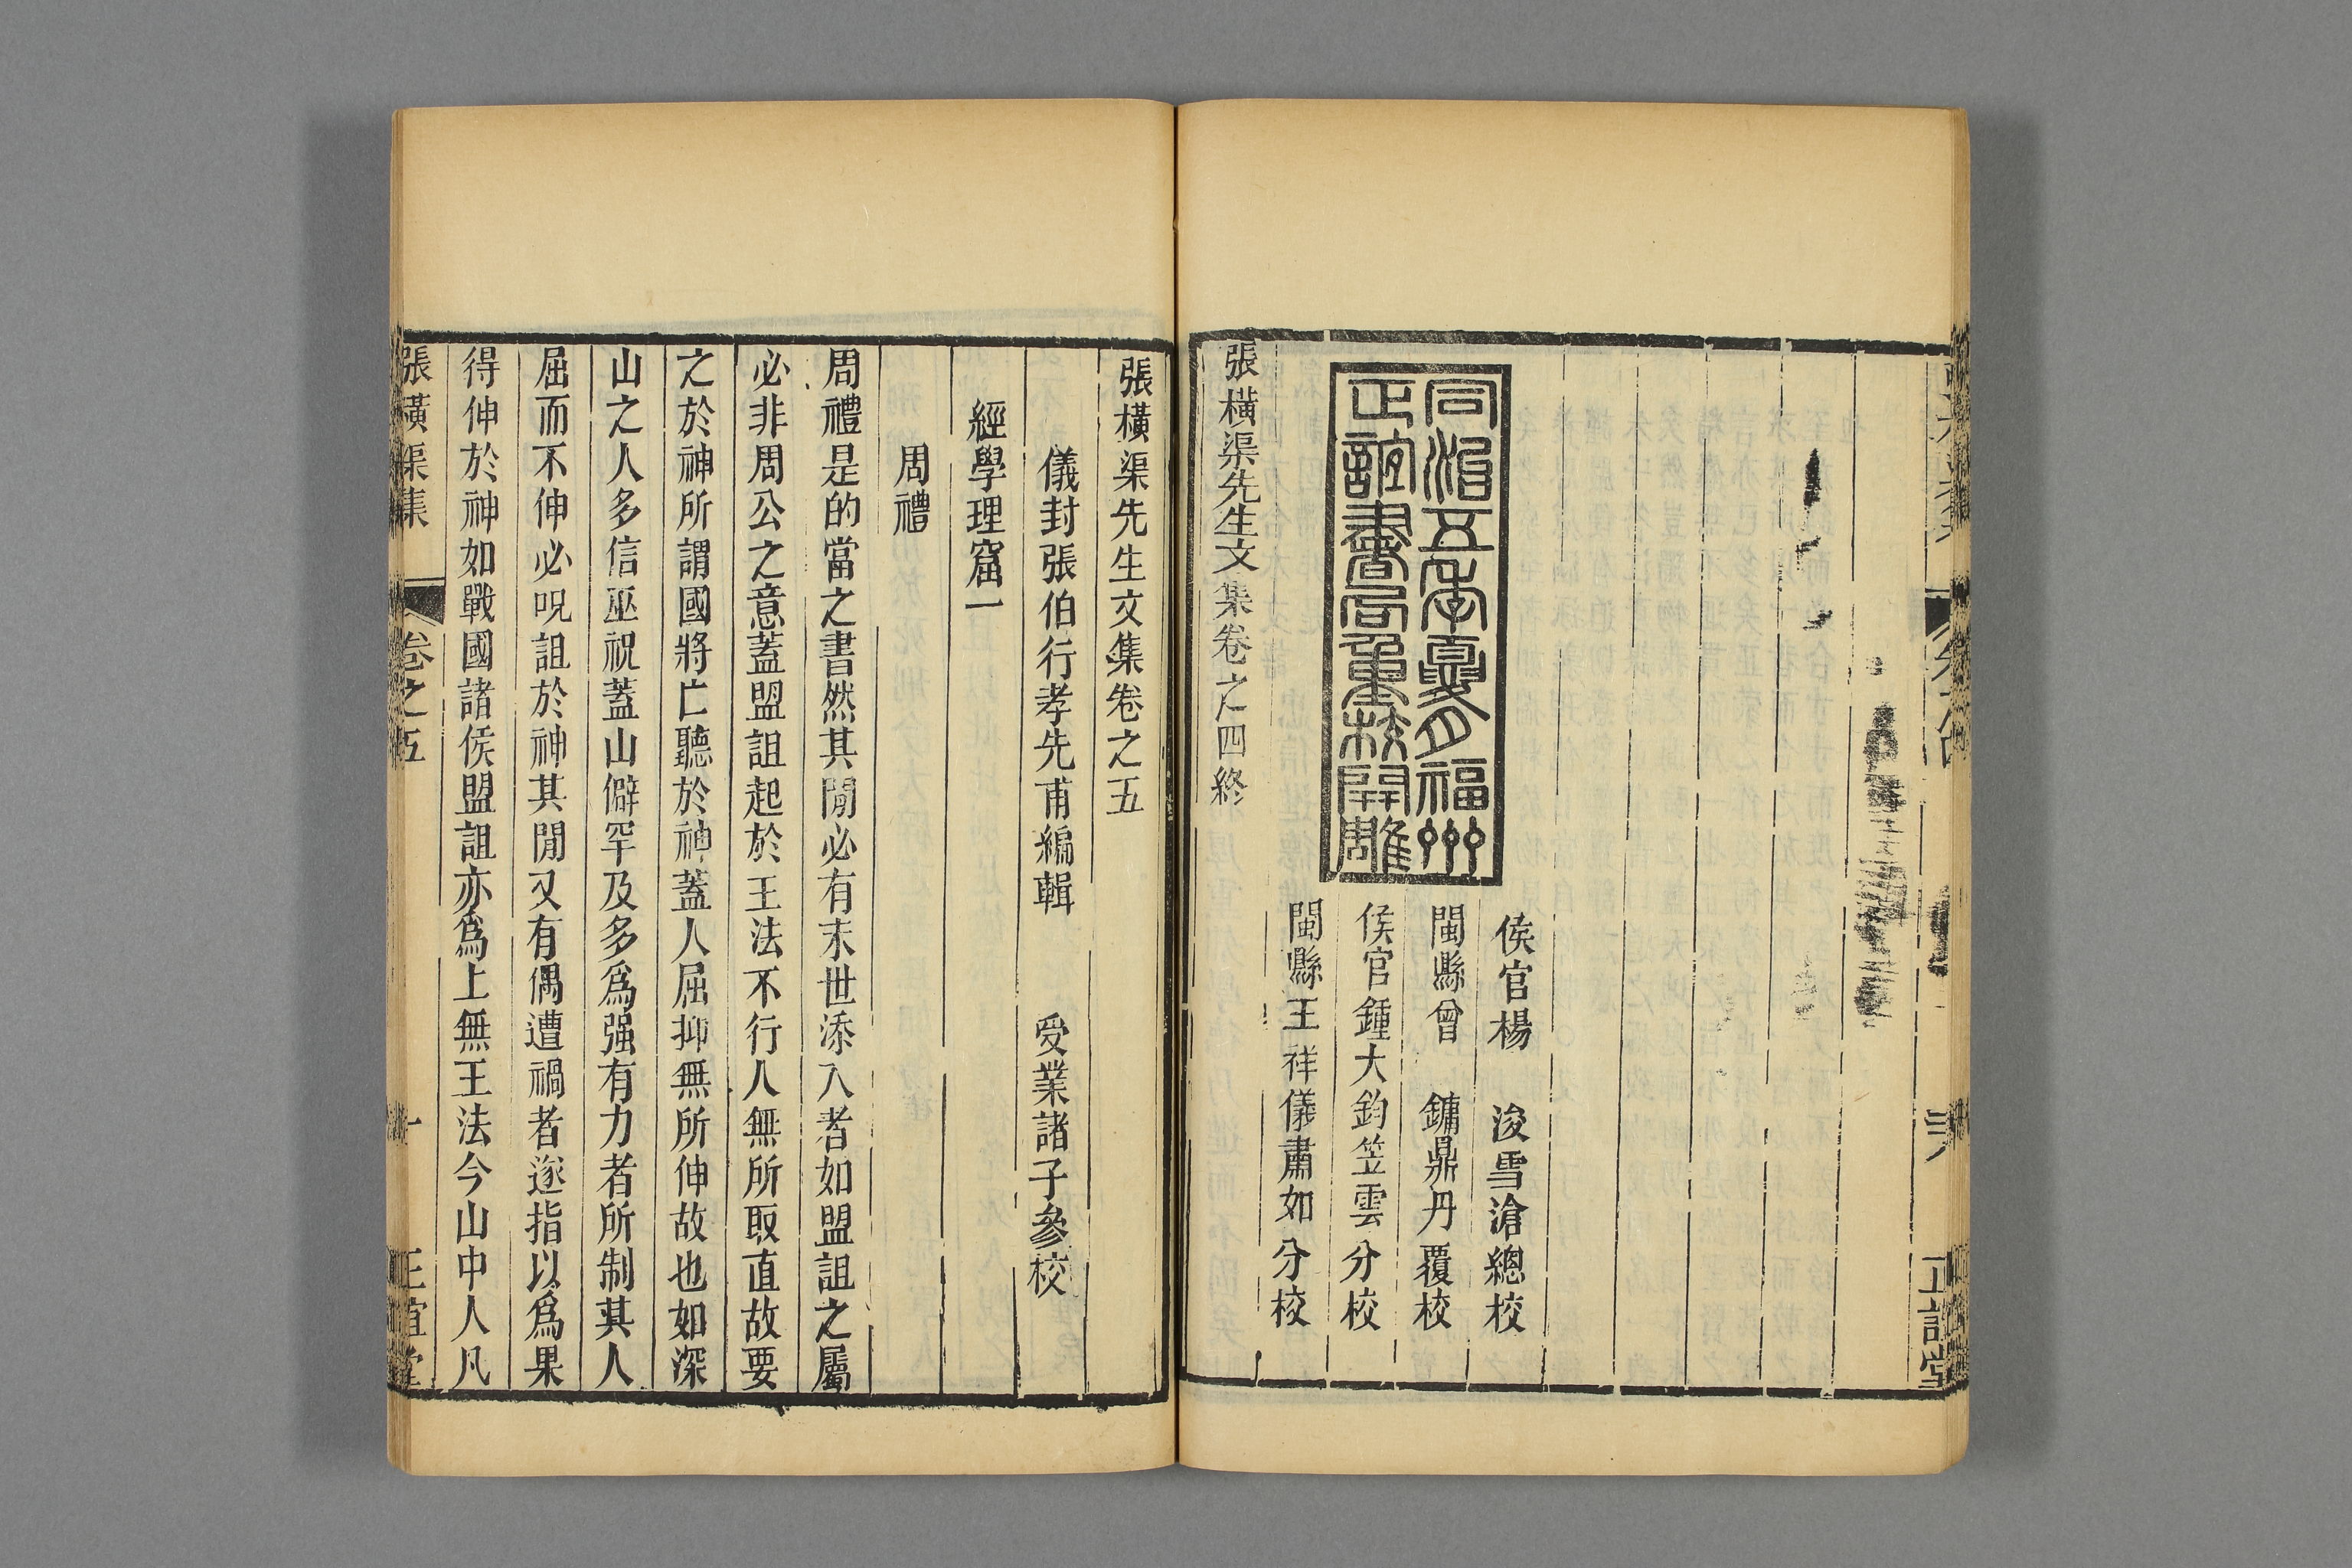 正誼堂
同治五年夏月福州
正誼書局重校開雕
侯官楊　浚雪滄總校
閩縣曾　鏞鼎丹覆校
侯官鍾大鈞笠雲分校
閩縣王祥儀肅如分校
張橫渠先生文集卷之四終
張橫渠先生文集卷之五
儀封張伯行孝先甫編輯　受業諸子參校
經學理窟一
周禮
周禮是的當之書然其閒必有末世添入者如盟詛之屬
必非周公之意蓋盟詛起於王法不行人無所取直故要
之於神所謂國將亡聽於神蓋人屈抑無所伸故也如深
山之人多信巫祝蓋山僻罕及多爲强有力者所制其人
屈而不伸必呪詛於神其閒又有偶遭禍者遂指以爲果
得伸於神如戰國諸侯盟詛亦爲上無王法今山中人凡
張橫渠集　卷之五　一　正誼堂